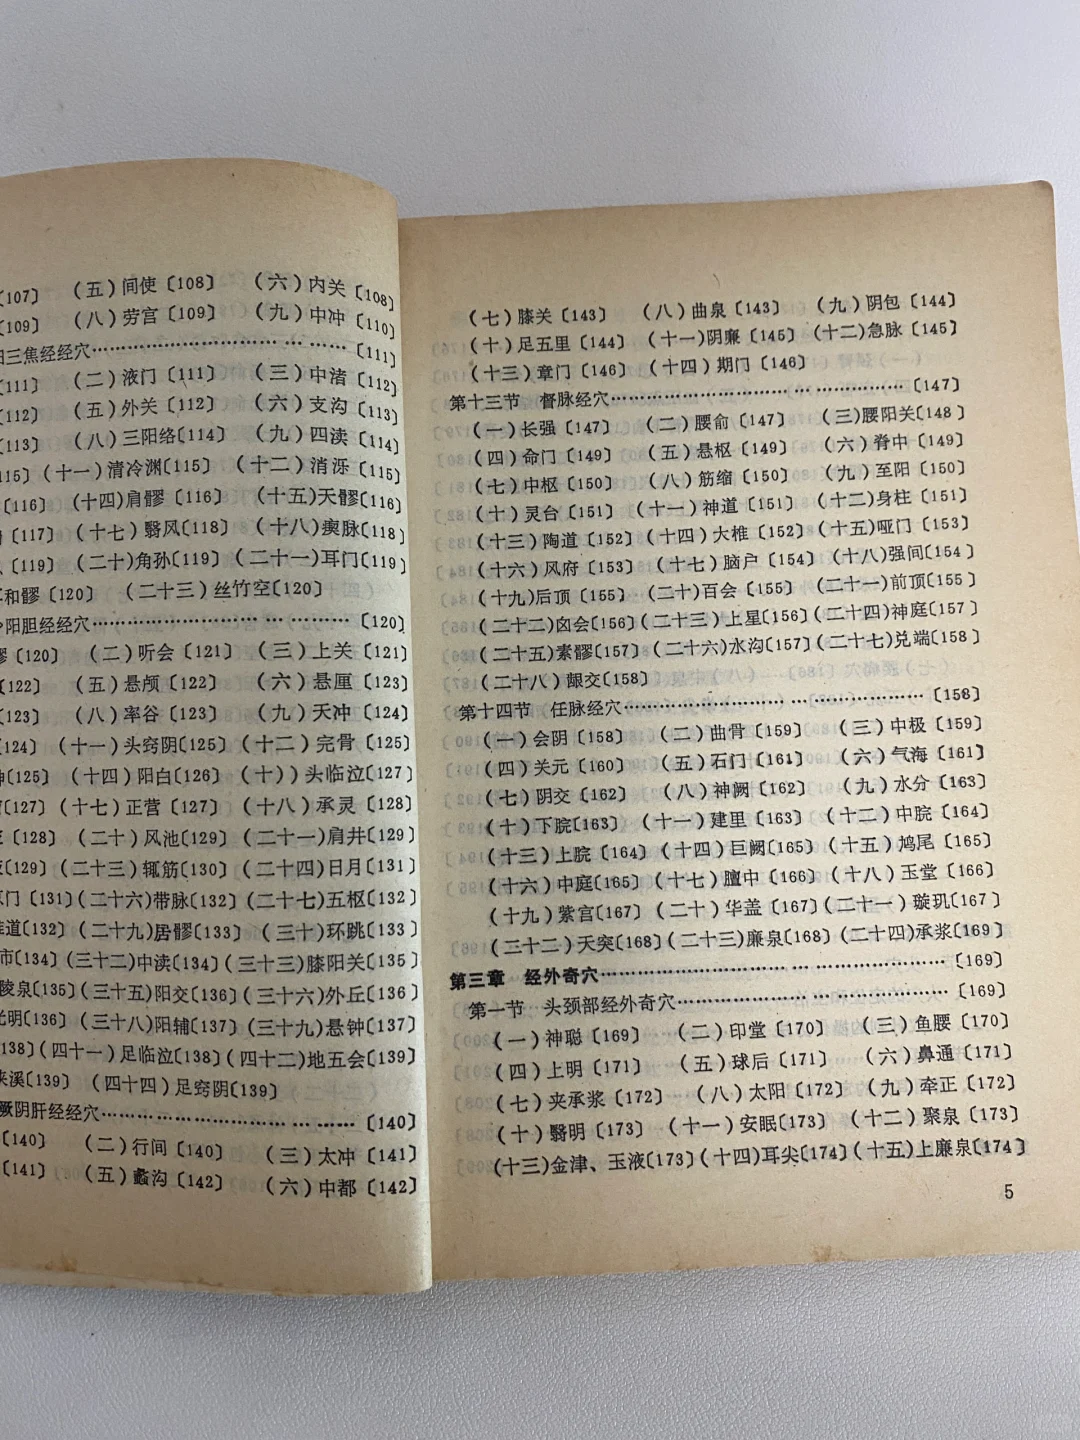 〔107〕 （五）间使〔108〕 （六）内关〔108〕
〔109〕 （八）劳宫〔109〕 （九）中冲〔110〕
三焦经经穴…………………………………〔111〕
〔111〕 （二）液门〔111〕 （三）中渚〔112〕
〔112〕 （五）外关〔112〕 （六）支沟〔113〕
〔113〕 （八）三阳络〔114〕 （九）四渎〔114〕
115〕 （十一）清冷渊〔115〕 （十二）消泺〔115〕
〔116〕 （十四）肩髎〔116〕 （十五）天髎〔116〕
〔117〕 （十七）翳风〔118〕 （十八）瘈脉〔118〕
〔119〕 （二十）角孙〔119〕 （二十一）耳门〔119〕
和髎〔120〕 （二十三）丝竹空〔120〕
阳胆经经穴…………………………………〔120〕
髎〔120〕 （二）听会〔121〕 （三）上关〔121〕
〔122〕 （五）悬颅〔122〕 （六）悬厘〔123〕
〔123〕 （八）率谷〔123〕 （九）天冲〔124〕
〔124〕 （十一）头窍阴〔125〕 （十二）完骨〔125〕
〔125〕 （十四）阳白〔126〕 （十））头临泣〔127〕
〔127〕 （十七）正营〔127〕 （十八）承灵〔128〕
〔128〕 （二十）风池〔129〕 （二十一）肩井〔129〕
〔129〕 （二十三）辄筋〔130〕 （二十四）日月〔131〕
门〔131〕 （二十六）带脉〔132〕 （二十七）五枢〔132〕
道〔132〕 （二十九）居髎〔133〕 （三十）环跳〔133〕
市〔134〕 （三十二）中渎〔134〕 （三十三）膝阳关〔135〕
陵泉〔135〕 （三十五）阳交〔136〕 （三十六）外丘〔136〕
光明〔136〕 （三十八）阳辅〔137〕 （三十九）悬钟〔137〕
138〕 （四十一）足临泣〔138〕 （四十二）地五会〔139〕
溪〔139〕 （四十四）足窍阴〔139〕
厥阴肝经经穴…………………………………〔140〕
〔140〕 （二）行间〔140〕 （三）太冲〔141〕
〔141〕 （五）蠡沟〔142〕 （六）中都〔142〕
（七）膝关〔143〕 （八）曲泉〔143〕 （九）阴包〔144〕
（十）足五里〔144〕 （十一）阴廉〔145〕 （十二）急脉〔145〕
（十三）章门〔146〕 （十四）期门〔146〕
第十三节 督脉经穴…………………………………〔147〕
（一）长强〔147〕 （二）腰俞〔147〕 （三）腰阳关〔148〕
（四）命门〔149〕 （五）悬枢〔149〕 （六）脊中〔149〕
（七）中枢〔150〕 （八）筋缩〔150〕 （九）至阳〔150〕
（十）灵台〔151〕 （十一）神道〔151〕 （十二）身柱〔151〕
（十三）陶道〔152〕 （十四）大椎〔152〕 （十五）哑门〔153〕
（十六）风府〔153〕 （十七）脑户〔154〕 （十八）强间〔154〕
（十九）后顶〔155〕 （二十）百会〔155〕 （二十一）前顶〔155〕
（二十二）囟会〔156〕 （二十三）上星〔156〕 （二十四）神庭〔157〕
（二十五）素髎〔157〕 （二十六）水沟〔157〕 （二十七）兑端〔158〕
（二十八）龈交〔158〕
第十四节 任脉经穴…………………………………〔158〕
（一）会阴〔158〕 （二）曲骨〔159〕 （三）中极〔159〕
（四）关元〔160〕 （五）石门〔161〕 （六）气海〔161〕
（七）阴交〔162〕 （八）神阙〔162〕 （九）水分〔163〕
（十）下脘〔163〕 （十一）建里〔163〕 （十二）中脘〔164〕
（十三）上脘〔164〕 （十四）巨阙〔165〕 （十五）鸠尾〔165〕
（十六）中庭〔165〕 （十七）膻中〔166〕 （十八）玉堂〔166〕
（十九）紫宫〔167〕 （二十）华盖〔167〕 （二十一）璇玑〔167〕
（三十二）天突〔168〕 （二十三）廉泉〔168〕 （二十四）承浆〔169〕
第三章 经外奇穴…………………………………〔169〕
第一节 头颈部经外奇穴…………………………〔169〕
（一）神聪〔169〕 （二）印堂〔170〕 （三）鱼腰〔170〕
（四）上明〔171〕 （五）球后〔171〕 （六）鼻通〔171〕
（七）夹承浆〔172〕 （八）太阳〔172〕 （九）牵正〔172〕
（十）翳明〔173〕 （十一）安眠〔173〕 （十二）聚泉〔173〕
（十三）金津、玉液〔173〕 （十四）耳尖〔174〕 （十五）上廉泉〔174〕
5